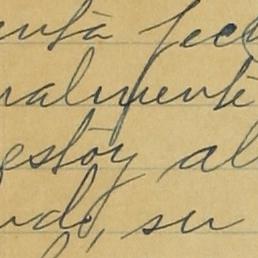 enta fec
nalmente
estoy al
ndo, su